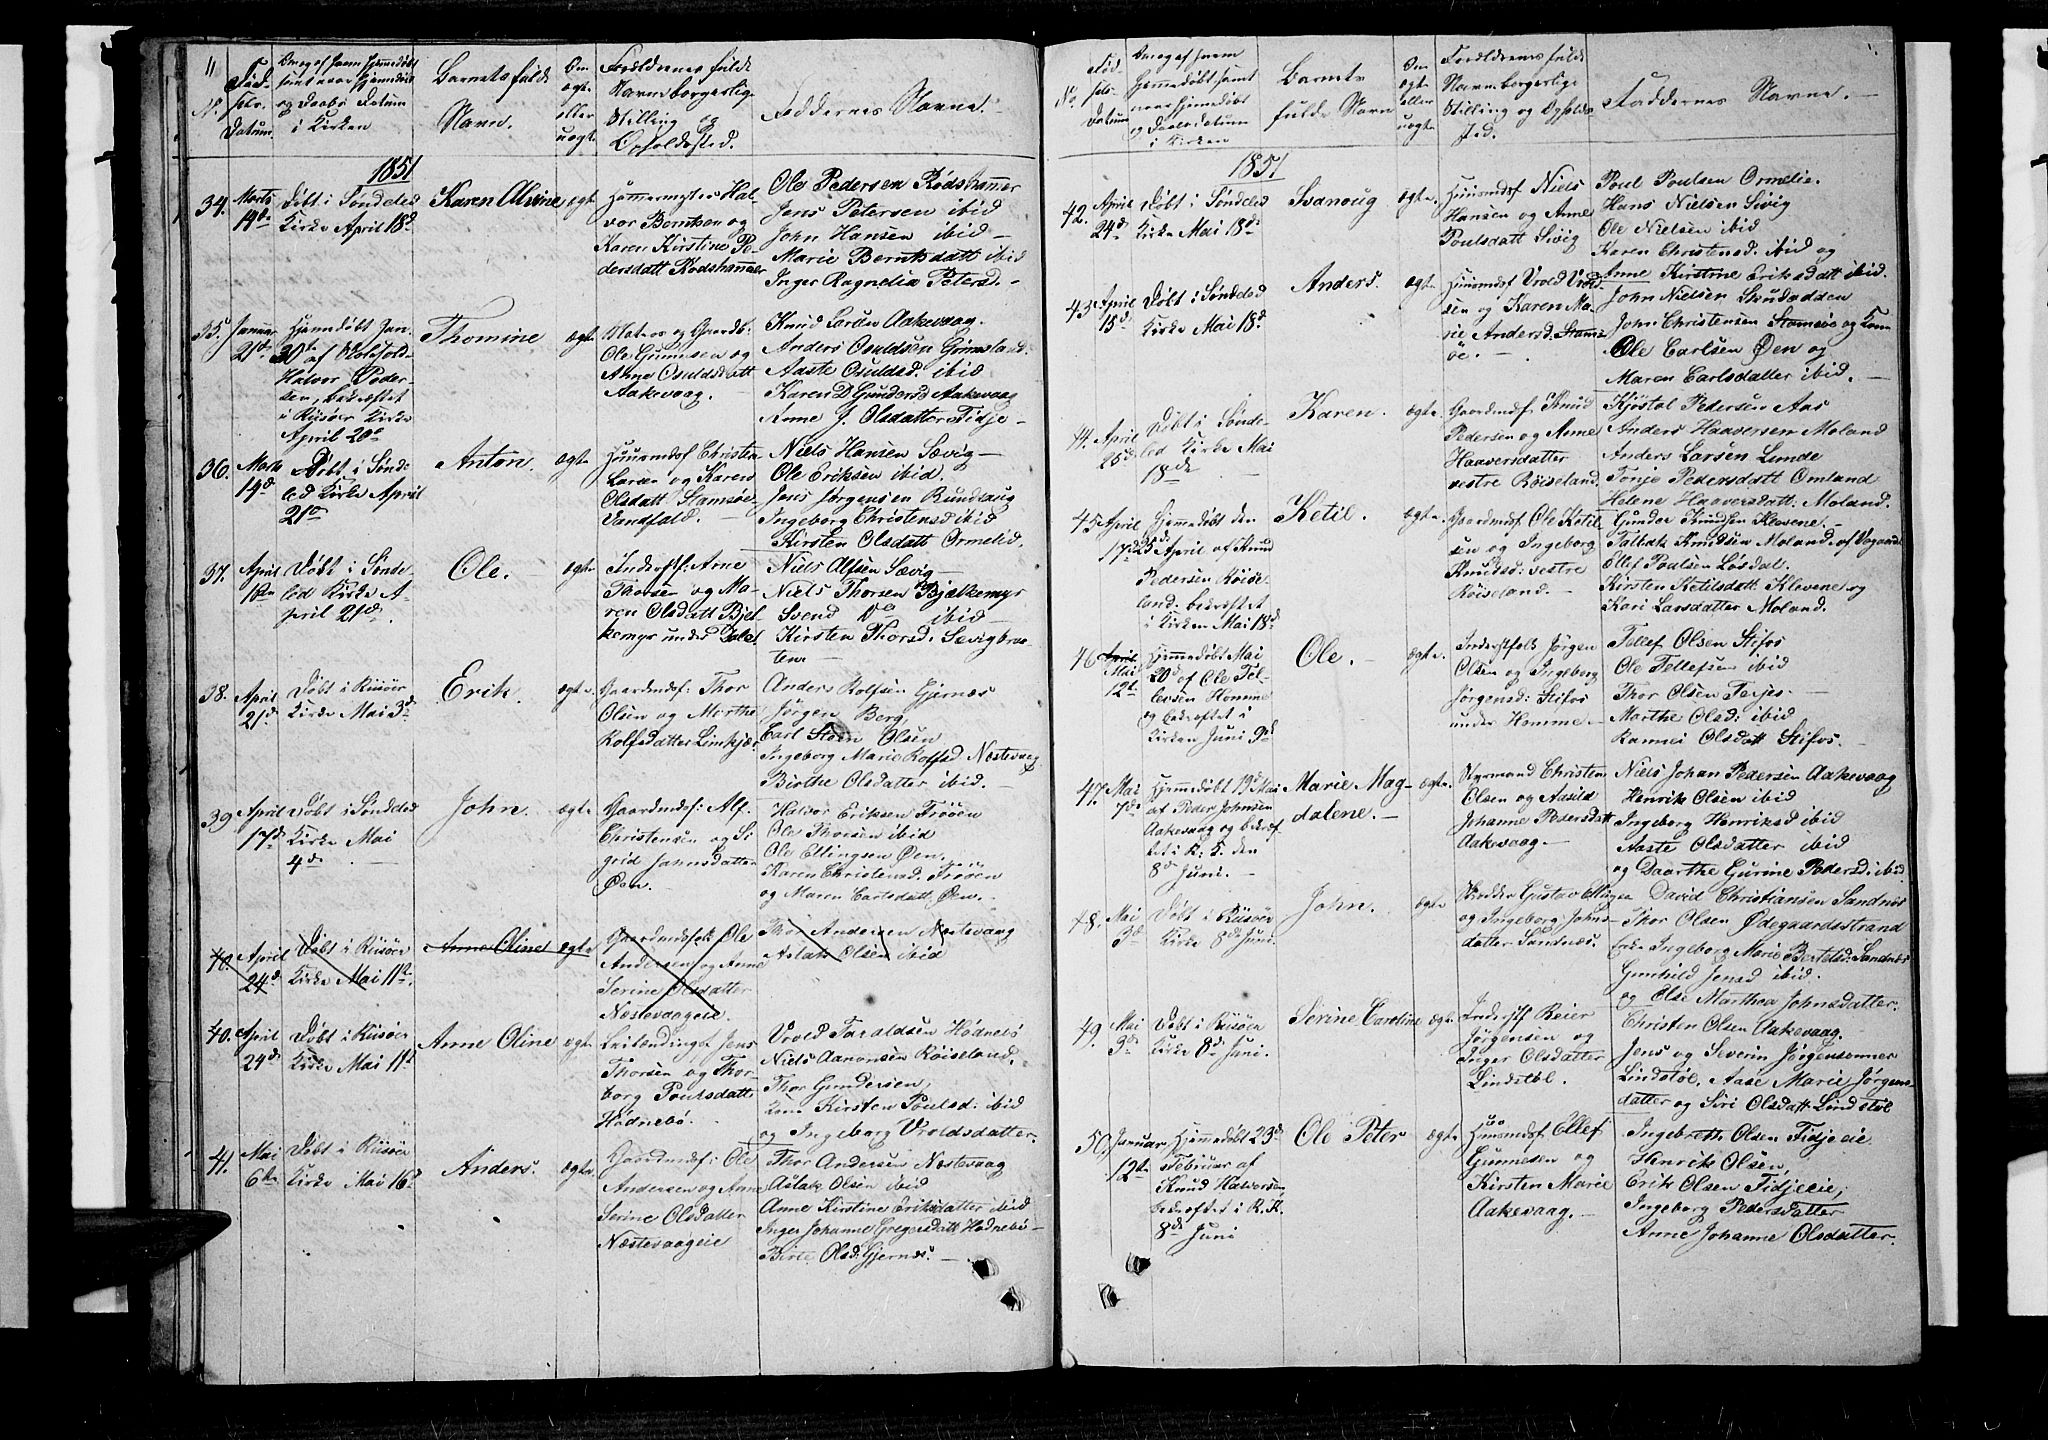 11
No.
Fød-
sels-
Datum.
Om og af hvem hjemmedøbt
samt naar hjemmedøbt
og Daabs Datum
i Kirken
Barnets fulde
Navn.
Om
ægte
eller
uægte
Forældrenes fulde
Navn borgerlige
Stilling og
Opholdssted.
Faddernes Navne.
1851
34. Marts
19de
Døbt i Søndeled
Kirke April 18de
Karen Alvine
ægte
Hammermester Hal-
vor Berntsen og
Karen Kirstine Pe-
dersdatt Rødshammer
Ole Pedersen Rødshammer
Jens Petersen ibid
John Hansen ibid
Marie Berntsdatt ibid
Inger Ragnelia Petersd.
35. Januar
21de
Hjemmedøbt Jan.
30te af
Halvor Peder-
sen, bekræftet
i Riisøer Kirke
April 20de
Thomine
ægte
Matros og Gaardb:
Ole Gunnesen og
Anne Osuldsdatt
Aakevaag.
Knud Larsen Aakevaag.
Anders Osuldsen Gjernesland.
Aaste Osuldsd. ibid
Karen D Gundersd Aakevaag
Anne J. Olsdatter Tidje
36. Marts
19de
Døbt i Sønde-
led Kirke April
21de
Anton.
ægte
Huusmdsf Christen
Larsen og Karen
Olsdatt Stamsøe
Sandfald.
Niels Hansen Sævig
Ole Eriksen ibid
Jens Jørgensen Bundsaug
Ingeborg Christensd ibid
Kirsten Olsdatt Ormelid.
37. April
18de
Døbt i Sønde
led Kirke A-
pril 21de.
Ole.
ægte
Inderstf: Arne
Thorsen og Ma-
ren Olsdatt Bjel-
kemyr under
Niels Alfsen Sævig
Niels Thorsen Bjælkemyr
Svend Do ibid
Kirsten Thorsd: Sævigbraa-
ten.
38. April
21de
Døbt i Riisøer
Kirke Mai 3de
Erik.
ægte.
Gaardmdsf: Thor
Olsen og Marthe
Rolfsdatter Limkjær
Anders Rolfsen Gjernæs
Jørgen Berg,
Carl Steen Olsen
Ingeborg Marie Rolfsd Næstevaag
Birthe Olsdatter ibid.
39 April
17de
Døbt i Søndeled
Kirke Mai
4de
John.
ægte
Gaardmdsf: Alf
Christensen og Si-
grid Jahnsdatter
Øen.
Halvor Eriksen Frøøen
Ole Thorsen ibid
Ole Ellingsen Øen,
Karen Christensd. Frøøen
og Maren Carlsdatt Øen.
40. April
24de
Døbt i Riisøer
Kirke Mai 11te.
Anne Oline
ægte
Gaardmdsfolk Ole
Andersen og Anne
Serine Olsdatter
Næstevaageie.
Thor Andersen Næstevaag
Aslak Olsen ibid
40. April
24de
Døbt i Riisøer
Kirke Mai 11te
Anne Oline
ægte
Leilændingsf Jens
Thorsen og Thor-
borg Poulsdatt
Hødnebø.
Vrold Taraldsen Hødnebø
Niels Aanonsen Røiseland.
Thor Gundersen,
Kone Kirsten Poulsd: ibid
og Ingeborg Vroldsdatter.
41. Mai
6te
Døbt i Riisøer
Kirke Mai 16de
Anders.
ægte
Gaardmdsf: Ole
Andersen og Anne
Serine Olsdatter
Næstevaageie
Thor Andersen Næstevaag
Aslak Olsen ibid
Anne Kirstine Eriksdatter ibid
Inger Johanne Gregersdatt Hødnebø
Birte Olsd. Gjernæs.
No.
Fød-
sels-
Datum
Om og af hvem
hjemmedøbt samt
naar hjemmedøbt
og Daabsdatum
i Kirken
Barnets
fulde Navn
Om
ægte
eller
uægte
Forældrenes fulde
Navn borgerlige
Stilling og Opholds-
sted.
Faddernes Navne.
1851
42. April
24de
Døbt i Søndeled
Kirke Mai 18de
Svanoug
ægte.
Huusmdsf Niels
Hansen og Anne
Poulsdatt Sivig
Poul Poulsen Ormelie.
Hans Nielsen Sivig
Ole Nielsen ibid
Karen Christensd. ibid og
Anne Kirstine Eriksdatt ibid.
43 April
15de
Døbt i Søndeled
Kirke Mai 18de
Anders.
ægte.
Huusmdsf Vrold Vrold-
sen og Karen Ma-
rie Andersd. Stams-
øe.
John Nielsen Skudodden
John Christensen Stamsøe og Kone
Ole Carlsen Øen og
Maren Carlsdatter ibid.
44. April
25de
Døbt i Sønde-
led Kirke Mai
18de
Karen.
ægte.
Gaardmdsf. Knud
Pedersen og Anne
Haaversdatter
vestre Røiseland.
Kjøstol Pedersen Aas
Anders Haaversen Moland
Anders Larsen Lunde
Tonje Pedersdatt Omland
Helene Haaversdatt: Moland.
45 April
17de
Hjemmedøbt den
25de April af Knud
Pedersen Røise-
land. bekræftet
i Kirken Mai 18de
Ketil.
ægte.
Gaardmdsf Ole Ketil-
sen og Ingeborg
Knudsd: vestre
Røiseland.
Gunder Knudsen Klevene.
Talbak Knudsen Moland af Vegaardsh
Ellef Poulsen Løsdal.
Kirsten Ketilsdatt Klevene og
Kari Larsdatter Moland.
46 April
Mai
12te
Hjemmedøbt Mai
20de af Ole Tel-
lefsen Homme
og bekræftet i
Kirken Juni 9de
Ole.
ægte.
Inderstfolk Jørgen
Olsen og Ingeborg
Jørgensd: Stifos
under Homme.
Tellef Olsen Stifos
Ole Tellefsen ibid
Thor Olsen Terjes.
Marthe Olsd: ibid
Rannei Olsdatt Stifos.
47. Mai
7de
Hjemmedøbt 19de Mai
af Peder Johnsen
Aakevaag og bekræf
tet i R: K. den
8de Juni.
Marie Mag-
dalene.
ægte.
Styrmand Christen
Olsen og Aasild
Johanne Pedersdatt
Aakevaag.
Niels Johan Pedersen Aakevaag
Henrik Olsen ibid
Ingeborg Henriksd ibid
Aaste Olsdatter ibid
og Daarthe Gurine Pedersd: ibid.
48. Mai
3de
Døbt i Riisøer
Kirke 8de Juni.
John.
ægte
Skredder Gustav Ellingsen
og Ingeborg Johns-
datter Sandnæs.
David Christiansen Sandnæs
Thor Olsen Ødegaardsstrand
Ingeborg Marie Bertelsd: Sandnæs
Gunhild Jensd ibid.
og Olse Marthea Johnsdatter.
49. Mai
3de
Døbt i Riisøer
Kirke 8de Juni.
Serine Caroline
ægte.
Inderstf Reier
Jørgensen og
Inger Olsdatter
Lindstøl.
Christen Olsen Aakevaag.
Jens og Severin Jørgensønner
Lindstøl, Aase Marie Jørgens-
datter og Siri Olsdatt Lindstøl
50. Januar
12te
Hjemmedøbt 23de
Februar af
Knud Halvorsen
bekræftet i R. K.
8de Juni
Ole Peter
ægte
Huusmdsf Ellef
Gunnesen og
Kirsten Marie
Aakevaag.
Ingebreth Olsen Tidjeeie
Henrik Olsen,
Erik Olsen Tidjeeie,
Ingeborg Pedersdatter
Anne Johanne Olsdatter.